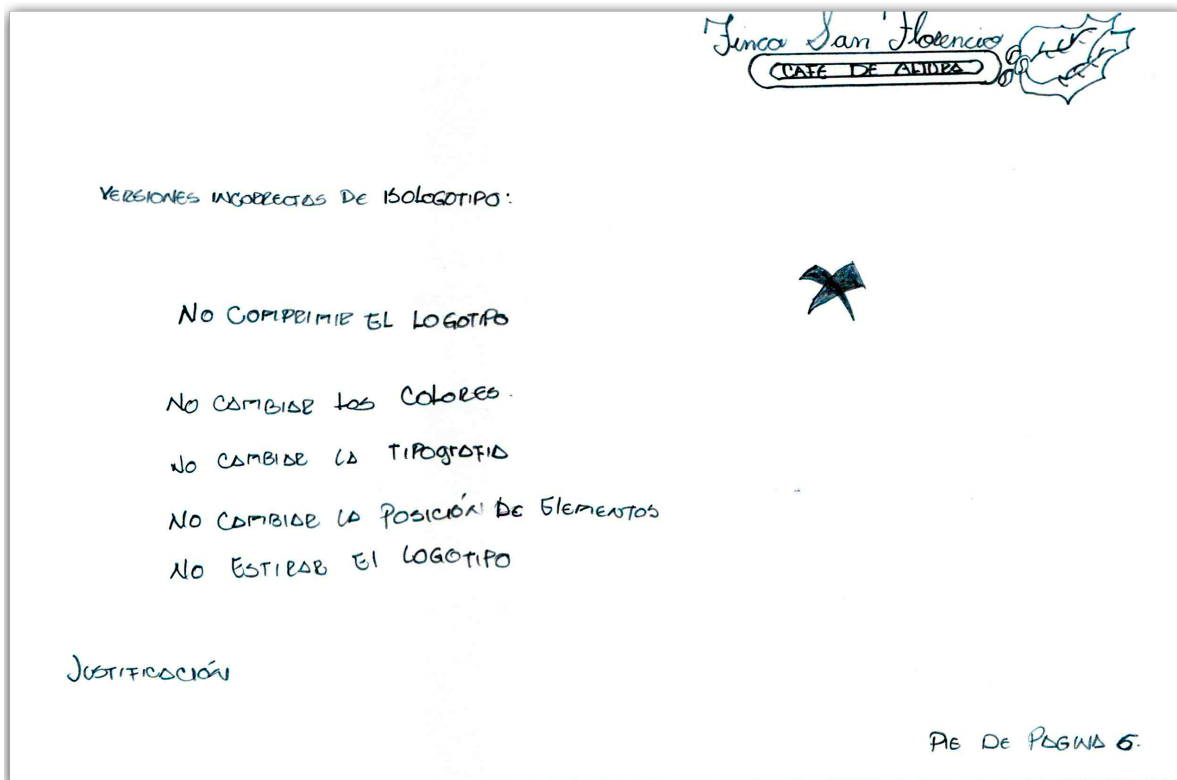 Finca San Florencio
CAFE DE ALTURA
VERSIONES INCORRECTAS DE ISOLOGOTIPO:
NO COMPRIMIR EL LOGOTIPO
NO CAMBIAR LOS COLORES.
NO CAMBIAR LA TIPOGRAFIA
NO CAMBIAR LA POSICIÓN DE ELEMENTOS
NO ESTIRAR El LOGOTIPO
JUSTIFICACIÓN
PIE DE PAGINA 6.